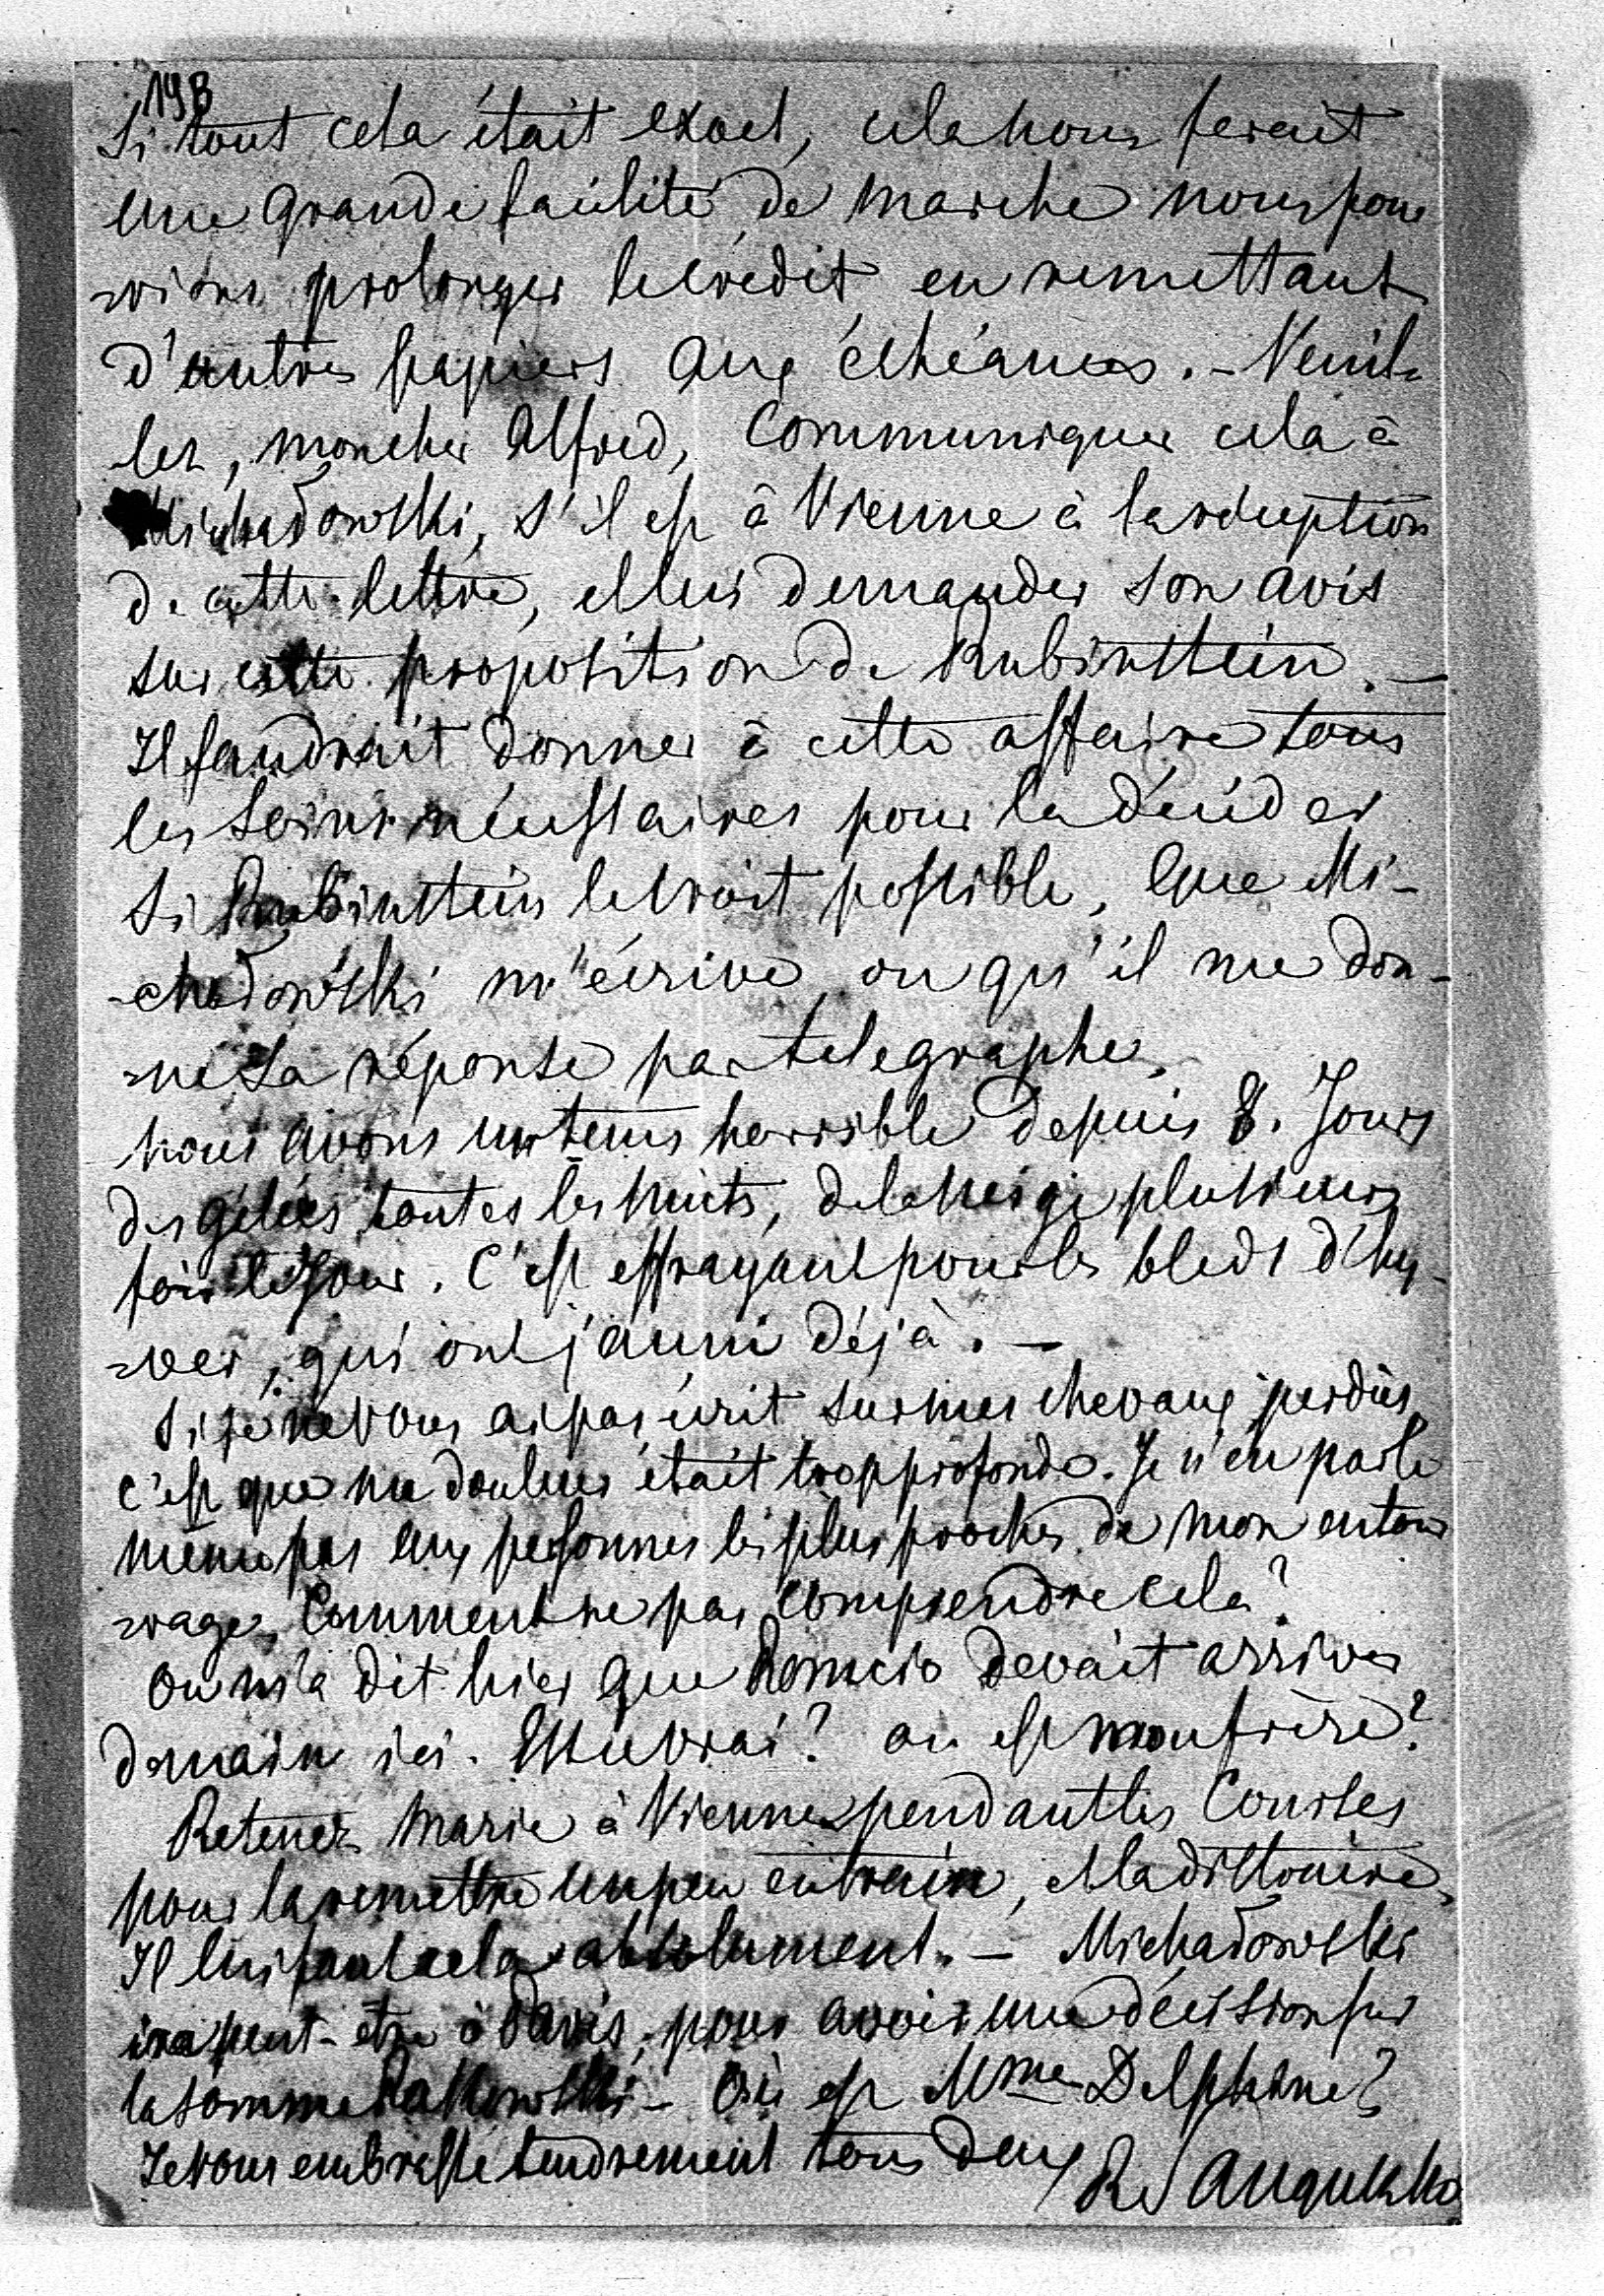 19B
Si tout cela était exact, cela nous ferait
une grande facilité de marche nous pour
rions prolonger le crédit en remettant
d'autres papiers aux échéances. - Veuil-
lez, mon cher Alfred, communiquer cela à
Michadowski, s'il est à Vienne à la réception
de cette lettre, et lui demander son avis
sur cette proposition de Rubinstein. -
Il faudrait donner à cette affaire tous
les soins nécessaires pour la décider
si Rubinstein le croit possible, que Mi-
chadowski m'écrive, ou qu'il me don-
ne sa réponse par telegraphe.
nous avons un tems horrible depuis 8. Jours
des gélées toutes les nuits, de la neige plusieurs
fois le Jour. C'est effrayant pour les bleds d'hy-
ver, qui ont jauni déjà. -
Si je ne vous ai pas écrit sur mes chevaux perdus,
c'est que ma douleur était trop profonde. Je n'en parle
même pas aux personnes les plus proches de mon entou
rage, Comment ne pas comprendre cela?
On m'a dit hier que Romcio devait arriver
demain ici. Est-ce vrai? ou est mon frère?
Retenez Marie à Vienne pendant les Courses
pour la remettre un peu en train, et la distraire,
Il lui faut cela absolument. - Michadowski
ira peut-être à Paris, pour avoir une décision sur
la somme - Où est Mme Delphine?
Je vous embrasse tendrement tous deux
R Sanguszko